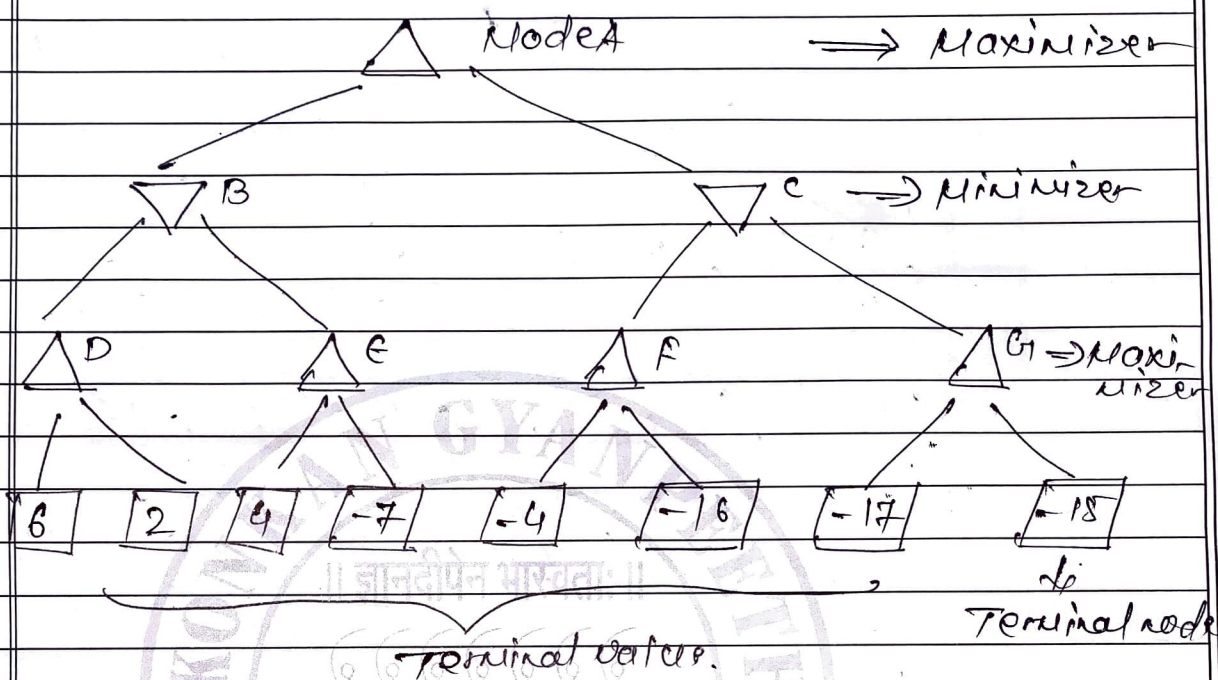 Node A ⇒ Maximizer
B C ⇒ Minimizer
D E F G ⇒ Maxi-
mizer
6 2 4 -7 -4 -16 -17 -18
Terminal node
Terminal values.
|| ज्ञानदीपेन भास्वताः ||